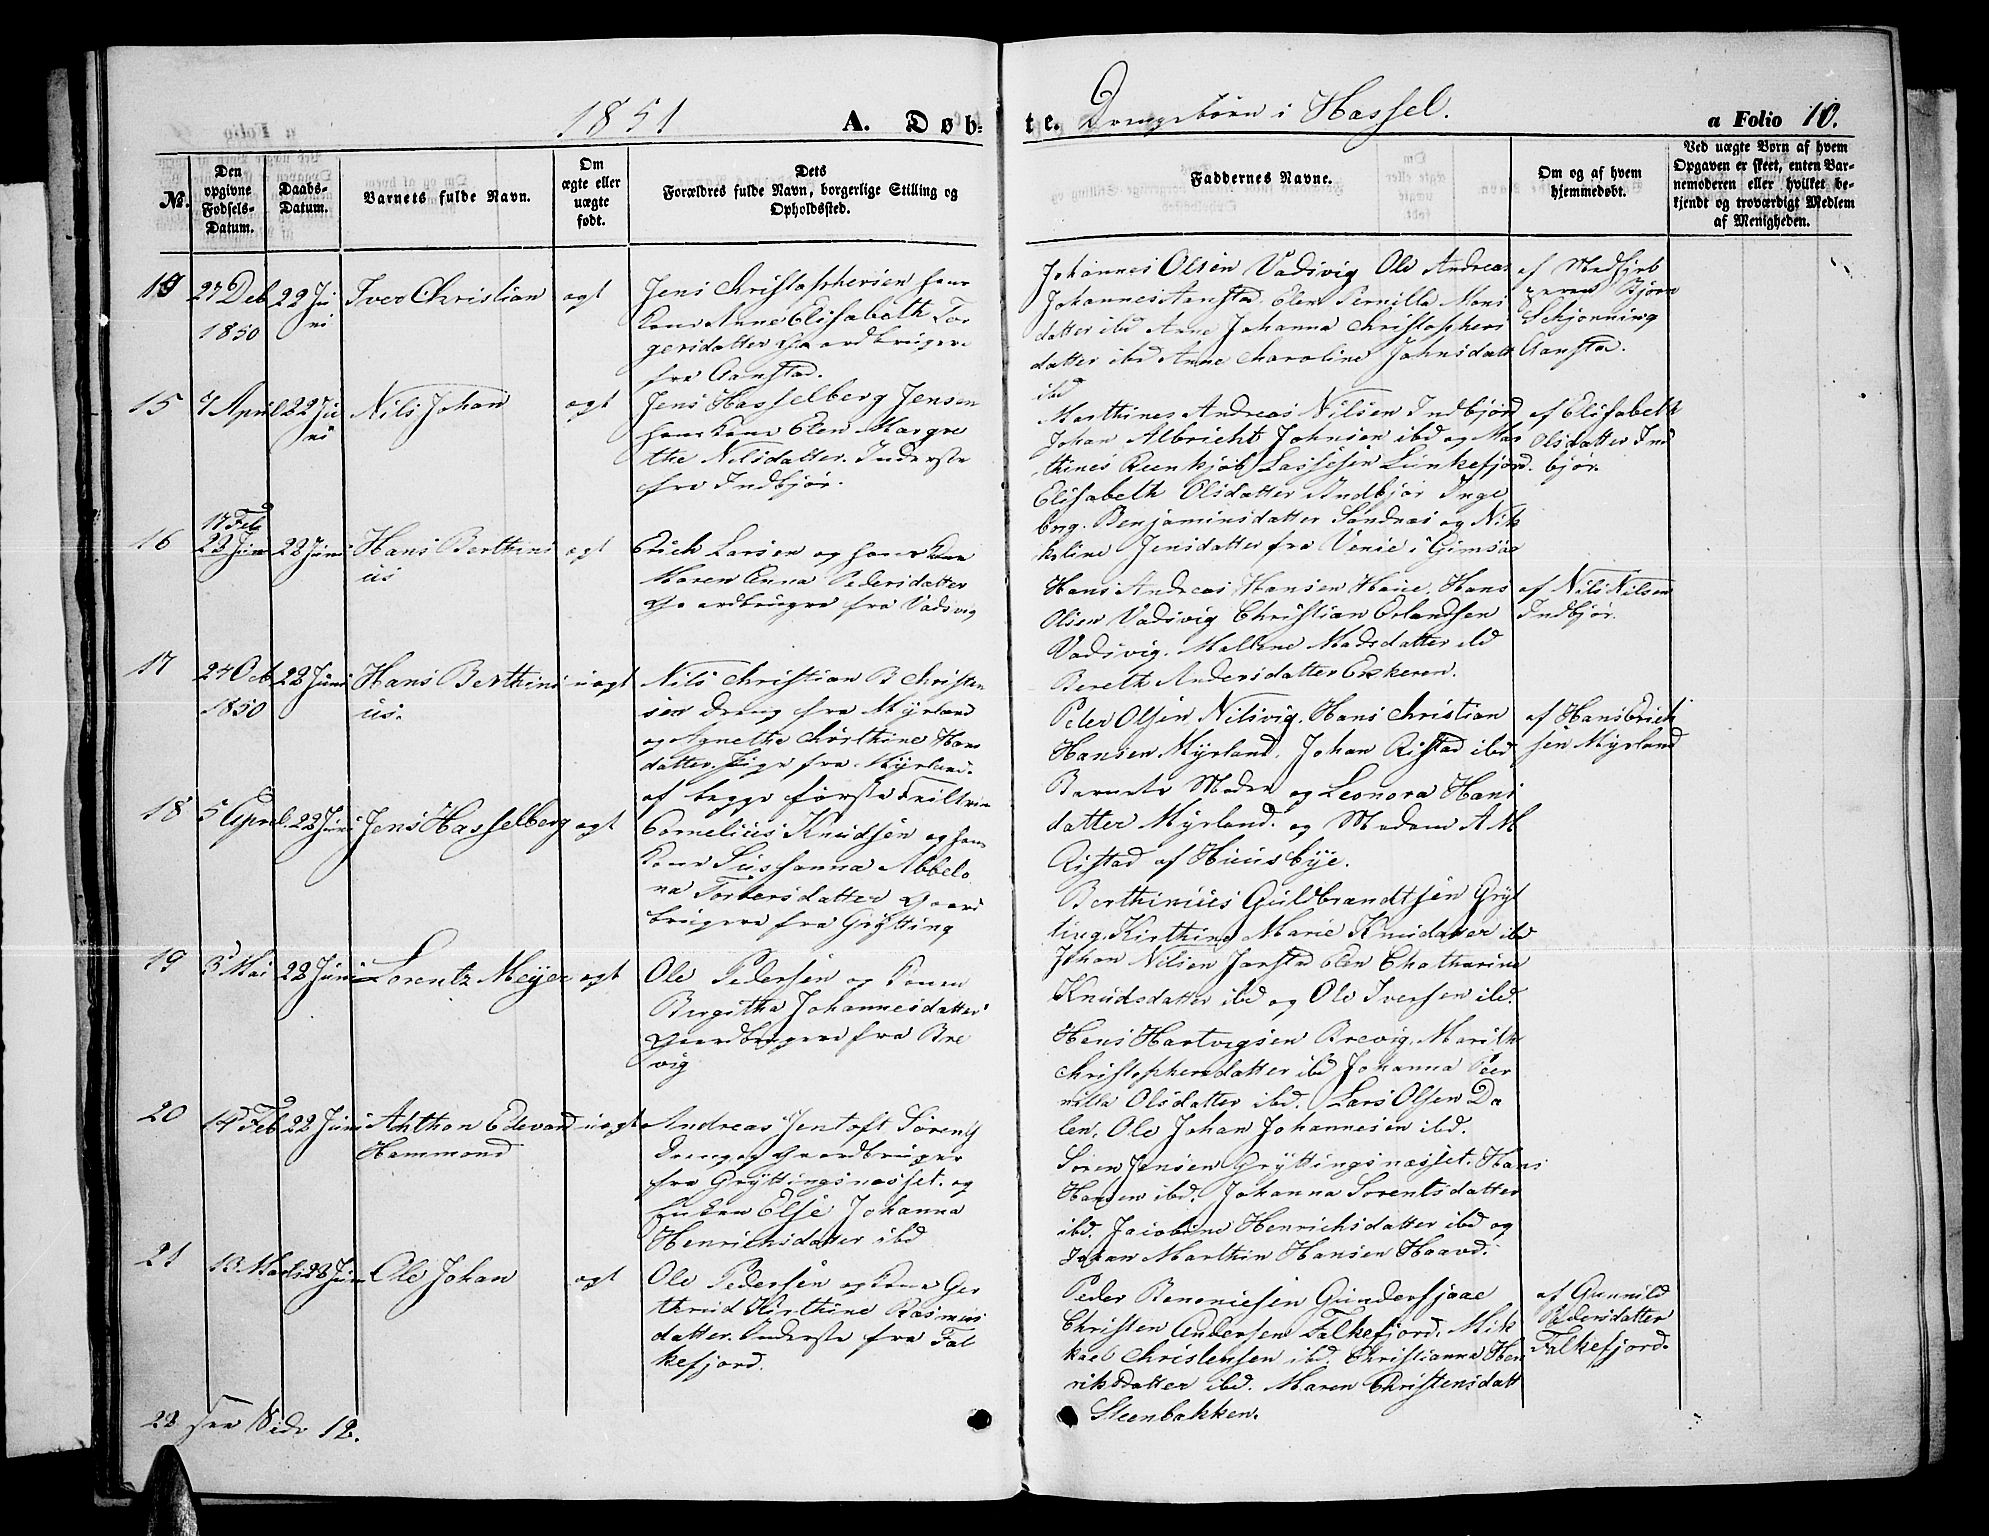 1851 A. Døb-
te. Drengebörn i Hassel. a Folio 10.
No.
Den opgivne Fødsels-Datum.
Daabs-Datum.
Barnets fulde Navn.
Om ægte eller uægte født.
Dets
Forældres fulde Navn, borgerlige Stilling og
Opholdssted.
Faddernes Navne.
Om og af hvem
hjemmedøbt.
Ved uægte Børn af hvem
Opgaven er skeet, enten Bar-
nemoderen eller hvilket be-
kjendt og troværdigt Medlem
af Menigheden.
27 Deb 22 Ju Iver Christian ægt Jens Christophersen hans
1850 ni Kone Anne Elisabeth Tor
gersdatter Gaardbrugere
fra Aanstad.
Johannes Olsen Vadsvig Ole Andreas
Johannes Aanstad. Elen Pernilla Mons
datter ibd Anne Johanna Christophers
datter ibd Anne Caroline Johnsdatt
ibd
af Medhjelp
Bjørn
Schjønning
Aanstad.
15 7 April 22 Ju Nils Johan ægt Jens Hasselberg Jensen
ni hans Kone Elen Margre
the Nilsdatter. Inderste
fra Indbjør.
Marthines Andreas Nilsen Indbjørd
Johan Albricht Johnsen ibd og Mar
thines Reenkjøb Lassesen Lunkefjord.
Elisabeth Olsdatter Indbjør Inge
brg. Benjaminsdatter Sandnes og Nik
koline Jensdatter fra Venie i Gimsøe
af Elisabeth
Olsdatter Ind
bjør.
17 Feb
16 22 Juni 22 Juni Hans Berthini ægt Erich Larsen og hans Kone
us Maren Anna Pedersdatter
Gaardbrugre fra Vadsvig
Hans Andreas Hansen Haie. Hans
Olsen Vadsvig Christian Erlandsen
Vadsvig. Mallene Madsdatter ibd
Bereth Andersdatter Eskeren.
af Nils Nilsen
Indbjør.
17 24 Oct 22 Juni Hans Berthini uægt Nils Christian B Christen
1850 us. sen Dreng fra Myrland
og Agnethe Christine Hans
datter. Pige fra Myrland.
af begge første Feiltrin
Peter Olsen Nilsvig. Hans Christian
Hansen Myrland. Johan Ristad ibd
Barnets Moder og Leonora Hans
datter Myrland. og Madam A M
Ristad af Huusbye.
af Hans Erich
sen Myrland
18 5 April. 22 Juni Jens Hasselberg ægt Cornelius Knudsen og hans
Kone Sussanna Abbelo
na Torbersdatter Gaard
brugere fra Grytting
Berthinius Guldbrandtsen Gryt
ting. Kirthine Marie Knudsdatter ibd
Johan Nilsen Jørstad Elen Chatharina
Knudsdatter ibd og Ole Iversen ibd.
19 3 Mai 22 Juni Lorentz Meyer ægt Ole Pedersen og Konen
Birgitha Johannesdatter
Gaardbrugere fra Bre
vig
Hans Hartvigsen Brevig. Marith
Christophersdatter ibd Johanna Peer
nilla Olsdatter ibd. Lars Olsen Da
len. Ole Johan Johannesen ibd.
20 14 Feb 22 Juni Anthon Edevard uægt Andreas Jentoft Sørens
Hammond Dreng og Gaardbruger
fra Gryttingsnæsset. og
Enken Else Johanna
Henrichsdatter ibd
Søren Jensen Gryttingsnæsset. Hans
Hansen ibd. Johanna Sorentsdatter
ibd. Jacobine Henrichsdatter ibd og
Johan Marthin Hansen Haavd.
21 13 Marts 22 Juni Ole Johan ægt Ole Pedersen og Kone Ger
thrud Kirthine Rasmus
datter. Inderste fra Fal
kefjord.
Peder Benoniesen Gundersjaae
Christen Andersen Falkefjord. Mik
kael Christensen ibd. Christianna Hen
riksdatter ibd. Maren Christensdatt
Steenbakken.
af Gunnild
Pedersdatter
Falkefjord.
22 see Side 12.